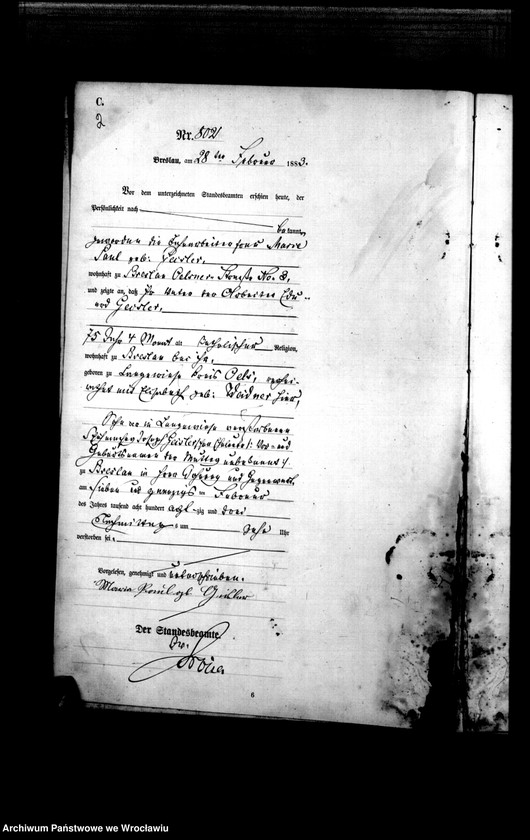 C.
2
Nr. 802
Breslau, am 28ten Februar 1883.
Vor dem unterzeichneten Standesbeamten erschien heute, der
Persönlichkeit nach
bekannt,
die Marie
Paul geb. Geisler,
wohnhaft zu Breslau Oelsner Straße No. 8,
und zeigte an, daß Ihr Vater der Arbeiter Edu-
ard Geisler,
75 Jahr 4 Monat alt, katholischer Religion,
wohnhaft zu Breslau bei ihr,
geboren zu Langewiese Kreis Oels, verhei-
rathet mit Elisabeth geb. Weidner hier,
Sohn der in Langewiese verstorbenen
Joseph Geisler'schen Eheleute /: Vor- und
Geburtsname der Mutter unbekannt :/
zu Breslau in ihrer Wohnung und Gegenwart
am sieben und zwanzigsten Februar
des Jahres tausend acht hundert achtzig und drei
Nachmittags um zehn Uhr
verstorben sei.
Vorgelesen, genehmigt und unterschrieben.
Maria Paul gb Geisler
Der Standesbeamte.
6
Archiwum Państwowe we Wrocławiu